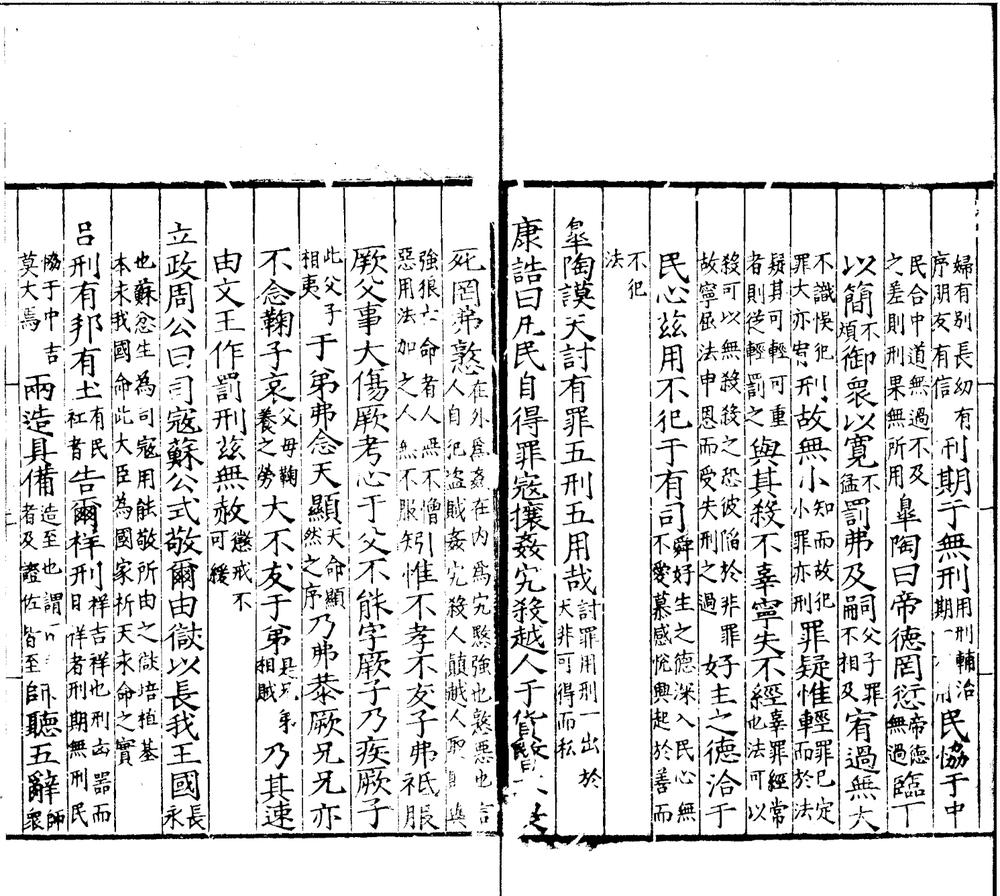 婦有別長幼有序朋友有信刑期于無刑用刑輔治期民協于中
民合中道無過不及之差則刑果無所用臯陶曰帝德罔愆帝德無過臨下
以簡不煩御衆以寬不猛罰弗及嗣父子罪不相及宥過無大
不識悞犯罪大亦宥刑故無小知而故犯小罪亦刑罪疑惟輕罪已定而於法
疑其可輕可重者則從輕罰之與其殺不辜寧失不經辜罪經常也法可以
殺可以無殺殺之恐彼陷於非罪故寧屈法申恩而受失刑之過好主之德洽于
民心茲用不犯于有司舜好生之德深入民心無不愛慕感恱興起於善而
不犯法
臯陶謨天討有罪五刑五用哉討罪用刑一出於天非可得而私
康誥曰凡民自得罪寇攘姦宄殺越人于貨暋
死罔弗憝在外為姦在内為宄暋強也憝惡也言人自犯盜賊姦宄殺人顛越人取
強狠亡命者人無不憎惡用法加之人無不服矧引惟不孝不友子弗祗服
厥父事大傷厥考心于父不能字厥子乃疾厥子
此父子相夷于弟弗念天顯天命顯然之序乃弗恭厥兄兄亦
不念鞠子哀父母鞠養之勞大不友于弟是兄弟相賊乃其速
由文王作罰刑茲無赦懲戒不可緩
立政周公曰司寇蘇公式敬爾由獄以長我王國長永
也蘇忿生為司寇用能敬所由之獄培植基本未我國命此大臣為國家祈天永命之實
呂刑有邦有土有民社者告爾祥刑祥吉祥也刑凶器而刑曰祥者刑期無刑民
協于中吉莫大焉兩造具備造至也謂者及證佐皆至師聽五辭師衆